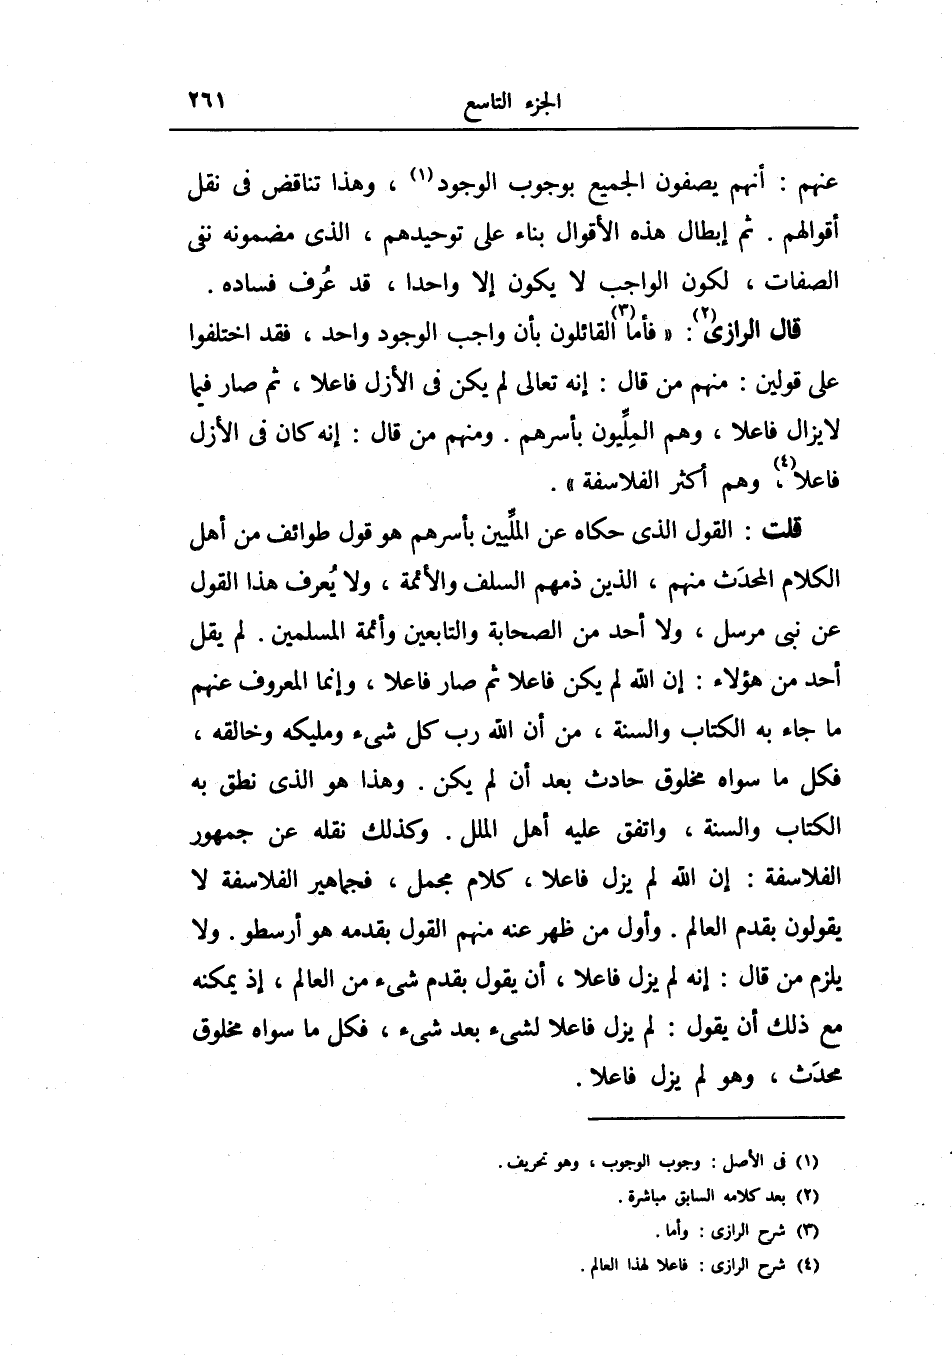 الجزء التاسع ٢٦١
عنهم : أنهم يصفون الجميع بوجوب الوجود(١) ، وهذا تناقض فى نقل
أقوالهم . ثم إبطال هذه الأقوال بناء على توحيدهم ، الذى مضمونه نفى
الصفات ، لكون الواجب لا يكون إلا واحدا ، قد عُرف فساده .
قال الرازى(٢) : « فأما(٣) القائلون بأن واجب الوجود واحد ، فقد اختلفوا
على قولين : منهم من قال : إنه تعالى لم يكن فى الأزل فاعلا ، ثم صار فيما
لايزال فاعلا ، وهم المِلِّيون بأسرهم . ومنهم من قال : إنه كان فى الأزل
فاعلا(٤) ، وهم أكثر الفلاسفة » .
قلت : القول الذى حكاه عن الملِّيين بأسرهم هو قول طوائف من أهل
الكلام المحدَث منهم ، الذين ذمهم السلف والأئمة ، ولا يُعرف هذا القول
عن نبى مرسل ، ولا أحد من الصحابة والتابعين وأئمة المسلمين . لم يقل
أحد من هؤلاء : إن الله لم يكن فاعلا ثم صار فاعلا ، وإنما المعروف عنهم
ما جاء به الكتاب والسنة ، من أن الله رب كل شىء ومليكه وخالقه ،
فكل ما سواه مخلوق حادث بعد أن لم يكن . وهذا هو الذى نطق به
الكتاب والسنة ، واتفق عليه أهل الملل . وكذلك نقله عن جمهور
الفلاسفة : إن الله لم يزل فاعلا ، كلام مجمل ، فجماهير الفلاسفة لا
يقولون بقدم العالم . وأول من ظهر عنه منهم القول بقدمه هو أرسطو . ولا
يلزم من قال : إنه لم يزل فاعلا ، أن يقول بقدم شىء من العالم ، إذ يمكنه
مع ذلك أن يقول : لم يزل فاعلا لشىء بعد شىء ، فكل ما سواه مخلوق
محدَث ، وهو لم يزل فاعلا .
(١) فى الأصل : وجوب الوجوب ، وهو تحريف .
(٢) بعد كلامه السابق مباشرة .
(٣) شرح الرازى : وأما .
(٤) شرح الرازى : فاعلا لهذا العالم .